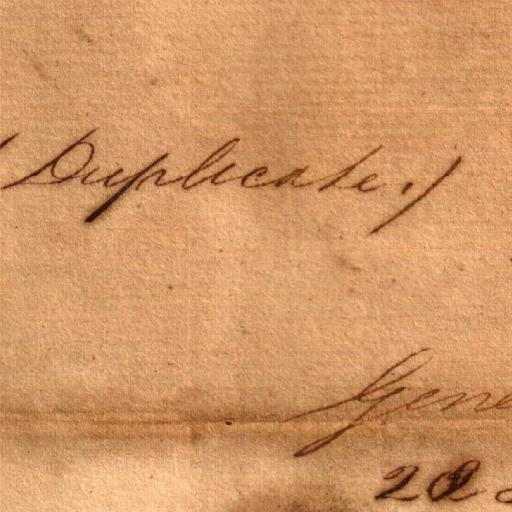 (Duplicate.)
Gene
22